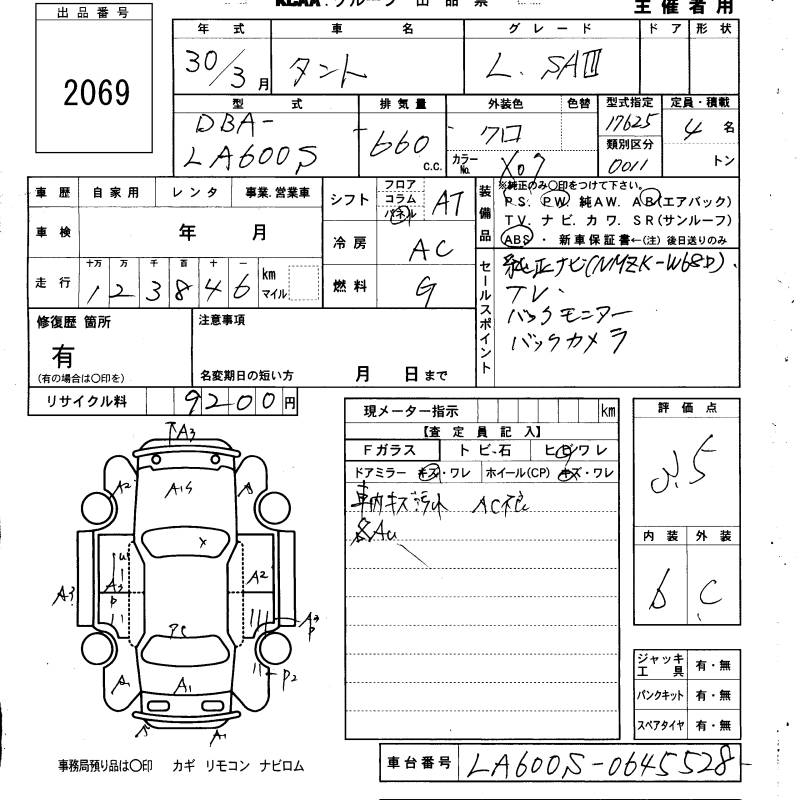 KCAA グループ 出品票
主催者用
出品番号
2069
年式 車名 グレード ドア 形状
30/3月 タント L. SAⅢ
型式 排気量 外装色 色替 型式指定 定員・積載
DBA- 17625 4名
LA600S 660 c.c. クロ 類別区分
カラーNo. X07 0011 トン
車歴 自家用 レンタ 事業.営業車
車検 年 月
走行 十万 万 千 百 十 一
1 2 3 8 4 6 km マイル
シフト フロア コラム パネル AT
冷房 AC
燃料 G
装備品
※純正のみ○印をつけて下さい。
P.S. P.W 純AW. AB(エアバック)
TV. ナビ. カワ. SR(サンルーフ)
ABS ・ 新車保証書←(注) 後日送りのみ
セールスポイント
純正ナビ(NMZK-W68D).
TV.
バックモニター
バックカメラ
修復歴 箇所
有
(有の場合は○印を)
注意事項
名変期日の短い方 月 日まで
リサイクル料 9200円
現メーター指示 km
【査定員記入】
Fガラス トビ.石 ヒビワレ
ドアミラー キズ・ワレ ホイール(CP) キズ・ワレ
車内キズ汚れ
評価点
3.5
内装 外装
b C
A3
A2 A
A2
A3
A3 P
A3 P
P2
A1
A1
ジャッキ 工具 有・無
パンクキット 有・無
スペアタイヤ 有・無
事務局預り品は○印 カギ リモコン ナビロム
車台番号 LA600S-0645528-